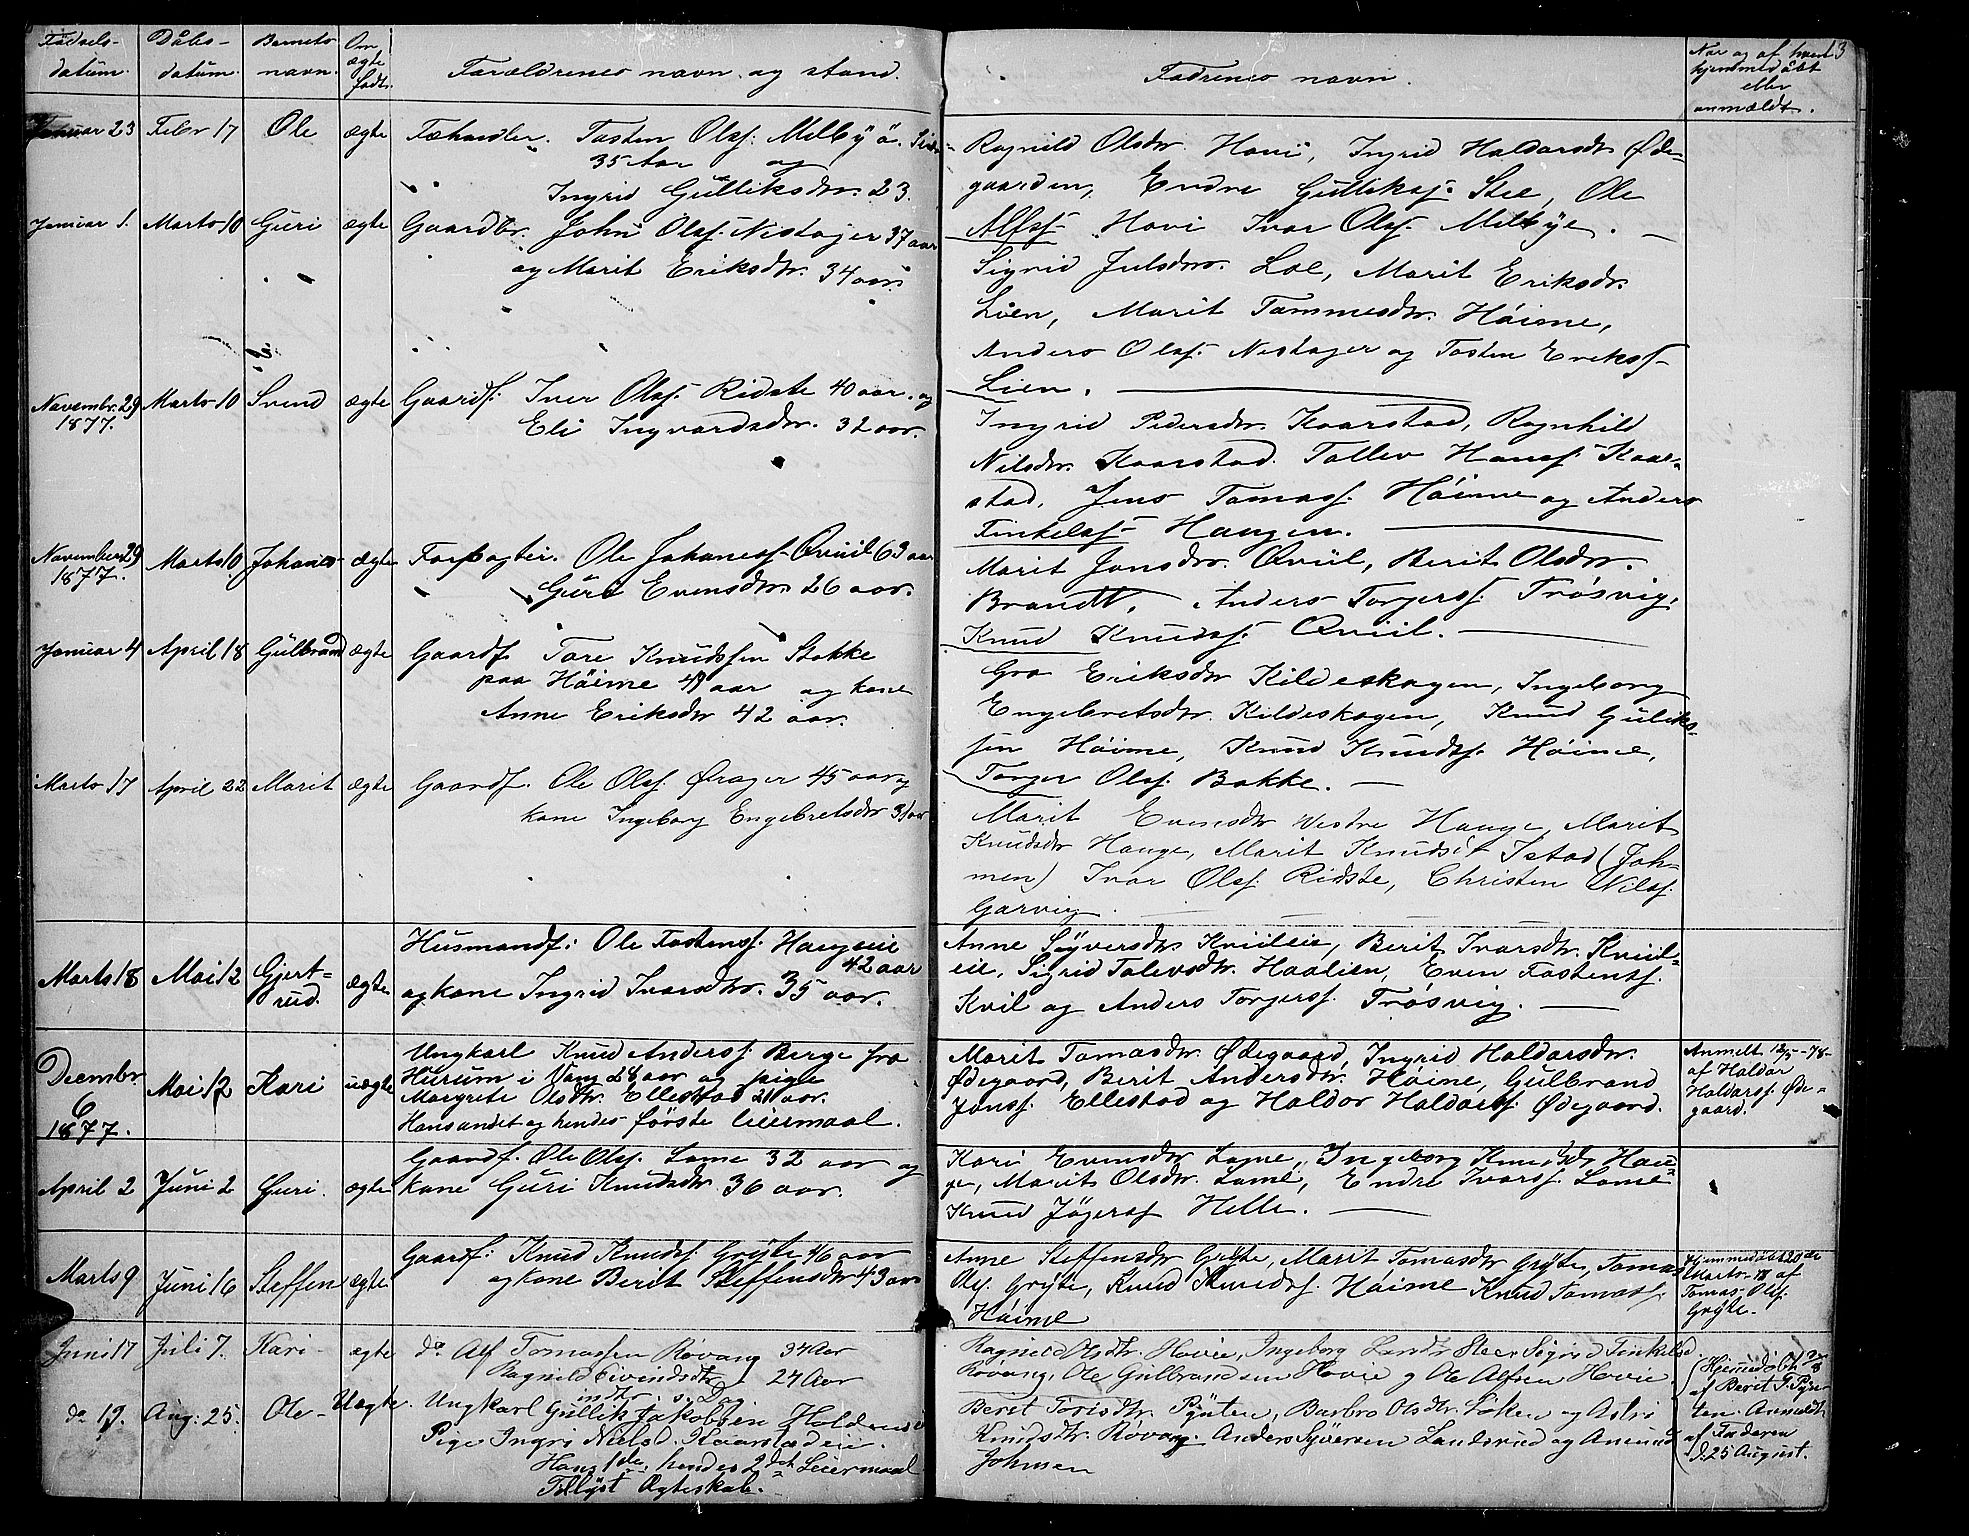 Fødsels-
datum.
Dåbs-
datum.
Barnets
navn.
Om
ægte
født.
Forældrenes navn og stand.
Fadrenes navn.
Nar og af hvem
hjemmedöbt
eller
anmældt.
3
Januar 23 Febr 17 Ole ægte Tosten Olsf. Milbÿ
35 Aar og
Ingrid Gulliksdtr. 23.
Ragnild Olsdtr. Hovi, Ingrid Haldorsdtr. Øde-
gaarden, Endre Gulliksf. Stee, Ole
Alfsf. Hovi Ivar Olsf. Milbÿe.
Januar 1. Marts 10 Guri ægte Gaardbr. John Olsf. Nestajer 37 aar
og Marit Eriksdtr. 34 aar.
Sigrid Julsdtr. Loe, Marit Eriksdtr.
Lien, Marit Tommesdtr. Höime,
Anders Olsf. Nestajer og Tosten Eriksf.
Lien.
Novembr. 29 Marts 10 Svend ægte Gaardf. Iver Olsf. Ridste 40 aar. og
1877. Eli Ingvardsdtr. 32 aar.
Ingrid Pedersdtr. Kaarstad, Ragnhild
Nilsdtr. Kaarstad. Tollev Hansf. Kaar-
stad, Jens Tomasf. Höime og Anders
Tinkelsf. Haugen.
November 29 Marts 10 Johanes ægte Forpagter. Ole Johanesf. Qviil 63 aar
1877. Guri Evensdtr. 26 aar.
Marit Jonsdtr. Qviil, Berit Olsdtr.
Brandt, Anders Torgersf. Trösvig,
Knud Knudsf. Qviil.
Januar 4 April 18 Gulbrand ægte Gaardf. Tore Knudssen Stokke
paa Höime aar og kone
Anne Eriksdtr 42 aar.
Gro Eriksdtr Kildeskogen, Ingeborg
Engebretsdtr. Kildeskogen, Knud Guliks-
sen Höime, Knud Knudsf. Höime,
Torger Olsf. Bakke.
Marts 17 April 22 Marit ægte Gaardf. Ole Olsf. Ørager 45 aar og
kone Ingeborg Engebretsdtr 31 aar
Marit Evensdtr Westre Hauge, Marit
Knudsdtr Hauge, Marit Knudsdt Istad (Joh-
men) Ivar Olsf. Ridste, Christen Nilsf.
Garvig.
Marts 18 Mai 12 Gjert-
rud. ægte Husmandf: Ole Tostensf. Haugeie
42 aar
og kone Ingrid Ivarsdtr. 35 aar.
Anne Syversdtr Kviileie, Berit Ivarsdtr. Kviil-
eie, Sigrid Tolevsdtr. Haalien, Even Tostensf.
Kvil og Anders Torgersf. Trösvig.
Decmbr.
6
1877. Mai 12 Kari uægte Ungkarl Knud Andersf. Berge fra
Hurum i Vang 28 aar og pige
Margrete Olsdtr. Ellestad 21 aar.
Hans andet og hendes förste leiermaal.
Marit Tomasdtr. Ødegaard, Ingrid Haldorsdtr.
Ødegaard, Berit Andersdtr. Höine, Gulbrand
Jonsf. Ellestad og Haldor Haldorsf. Ødegaard.
Anmelt 12/5-78-
af Haldor
Haldorsf. Øde-
gaard.
April 2 Juni 2 Guri. ægte Gaardf. Ole Olsf. Lome 32 aar og
kone Guri Knudsdtr 36 aar.
Kari Evensdtr Lome, Ingeborg Knudsdtr Hau-
ge, Marit Olsdtr. Lome, Endre Ivarsf. Lome
Knud Jögersf Helle.
Marts 9 Juni 16 Steffen ægte Gaardf: Knud Knudsf. Gryte 46 aar
og kone Berit Steffensdtr 43 aar
Anne Steffensdtr Gryte, Marit Tomasdtr Gryte, Tomas
Olsf. Gryte, Knud Knudsf. Höime Knud Tomasf.
Höime
Hjemmedöbt 20de
Marts af
Tomas Olsf.
Gryte.
Juni 17 Juli 7. Kari- ægte do Alf Tomassen Røvang 34 Aar
Ragnild Eivindsdtr 24 Aar
Ragnild Olsdtr. Hovie, Ingeborg Steer Sigrid
Røvang, Ole Gulbrandsen Hovie og Ole Alfsen Hovie
do 19. Aug. 25. Ole- Uægte. Ungkarl Gullik Jakobsen
Pige Ingri Nielsd. Kaarstadeie.
Hans 1de, hendes 2det Leiermaal
Tillyst Ægteskab.
Berit Torisdtr. Pynten, Barbro Olsdtr. Loken og Astri
Knudsdtr. Røvang. Anders Syversen Landsrud og Amund
Johnsen
af Berit T. Pyn-
ten. Anmeldt
af Faderen
d. 25 August.